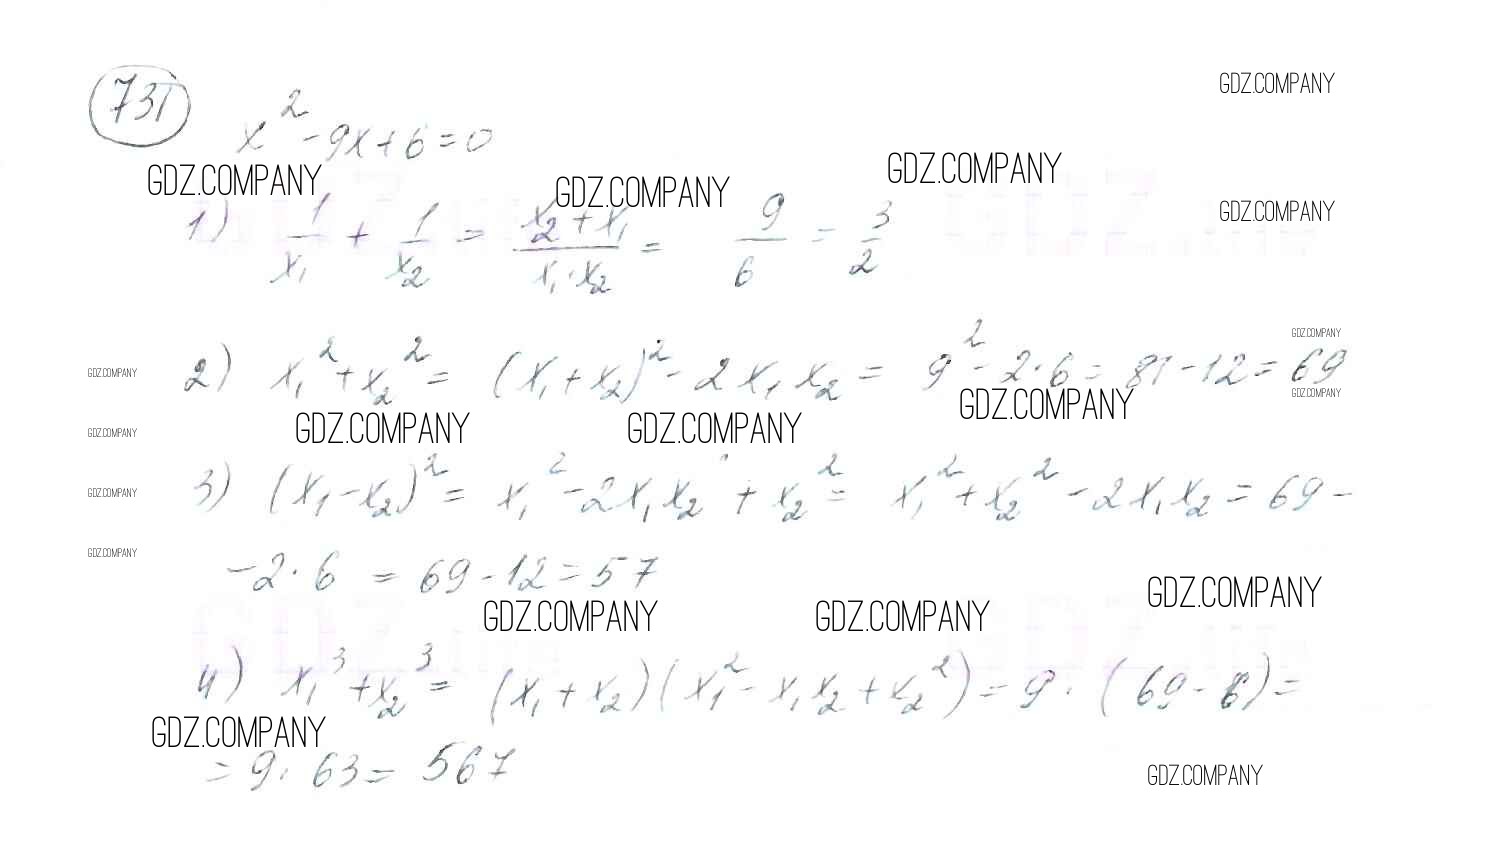 731
x² - 9x + 6 = 0
GDZ.COMPANY
GDZ.COMPANY
GDZ.COMPANY
GDZ.COMPANY
1) 1/x₁ + 1/x₂ = (x₂ + x₁)/(x₁ · x₂) = 9/6 = 3/2
GDZ.COMPANY
GDZ.COMPANY
2) x₁² + x₂² = (x₁ + x₂)² - 2x₁x₂ = 9² - 2 · 6 = 81 - 12 = 69
GDZ.COMPANY
GDZ.COMPANY
GDZ.COMPANY
GDZ.COMPANY
GDZ.COMPANY
GDZ.COMPANY
GDZ.COMPANY
3) (x₁ - x₂)² = x₁² - 2x₁x₂ + x₂² = x₁² + x₂² - 2x₁x₂ = 69 -
GDZ.COMPANY
- 2 · 6 = 69 - 12 = 57
GDZ.COMPANY
GDZ.COMPANY
GDZ.COMPANY
GDZ.COMPANY
4) x₁³ + x₂³ = (x₁ + x₂)(x₁² - x₁x₂ + x₂²) = 9 · (69 - 6) =
GDZ.COMPANY
= 9 · 63 = 567
GDZ.COMPANY